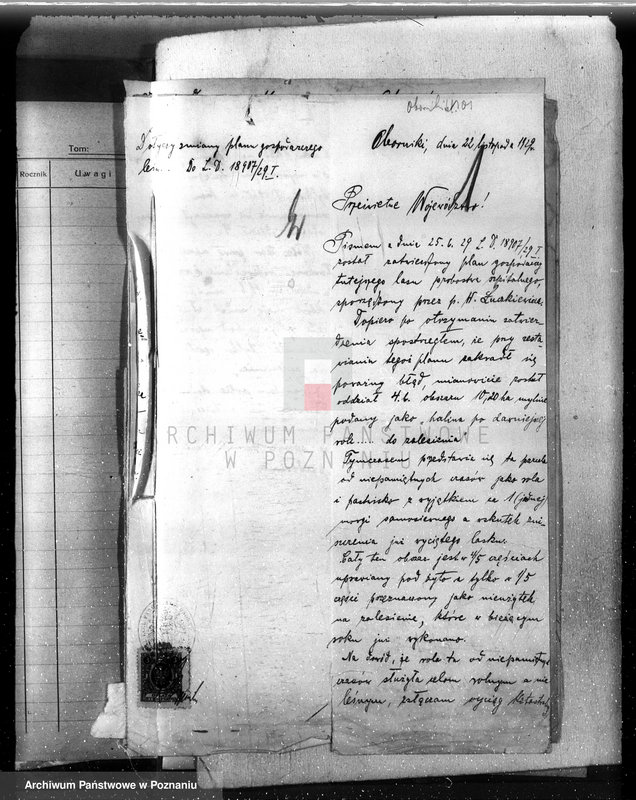 Tom:
Rocznik
Uwagi
Dotyczy zmiany planu gospodarczego
Do L. D. 18907/29 I.
Oborniki, dnia 22 listopada 1929.
Prześwietne Województwo!
Pismem z dnia 25.6.29 L. D. 18907/29 I
został zatwierdzony plan gospodarczy
tutejszego lasu probostwa szpitalnego,
sporządzony przez p. H.
Dopiero po otrzymaniu zatwier-
dzenia spostrzegłem, że przy zesta-
wianiu tegoż planu zakradł się
poważny błąd, mianowicie został
oddział 4.b. obszaru 10,20 ha mylnie
podany jako halizna po dawniejszej
roli do zalesienia.
Tymczasem przedstawia się ta parcela
od niepamiętnych czasów jako rola
i pastwisko z wyjątkiem ca 1 (jednej)
morgi samosiewnego a wskutek zni-
szczenia już wyciętego lasku.
Cały ten obszar jest w 4/5 częściach
uprawiany pod żyto a tylko w 1/5
części przeznaczony jako nieużytek
na zalesienie, które w bieżącym
roku już wykonano.
Na dowód, że rola ta od niepamiętnych
czasów służyła celom rolnym a nie
leśnym, załączam wyciąg
ARCHIWUM PAŃSTWOWE
W POZNANIU
Archiwum Państwowe w Poznaniu